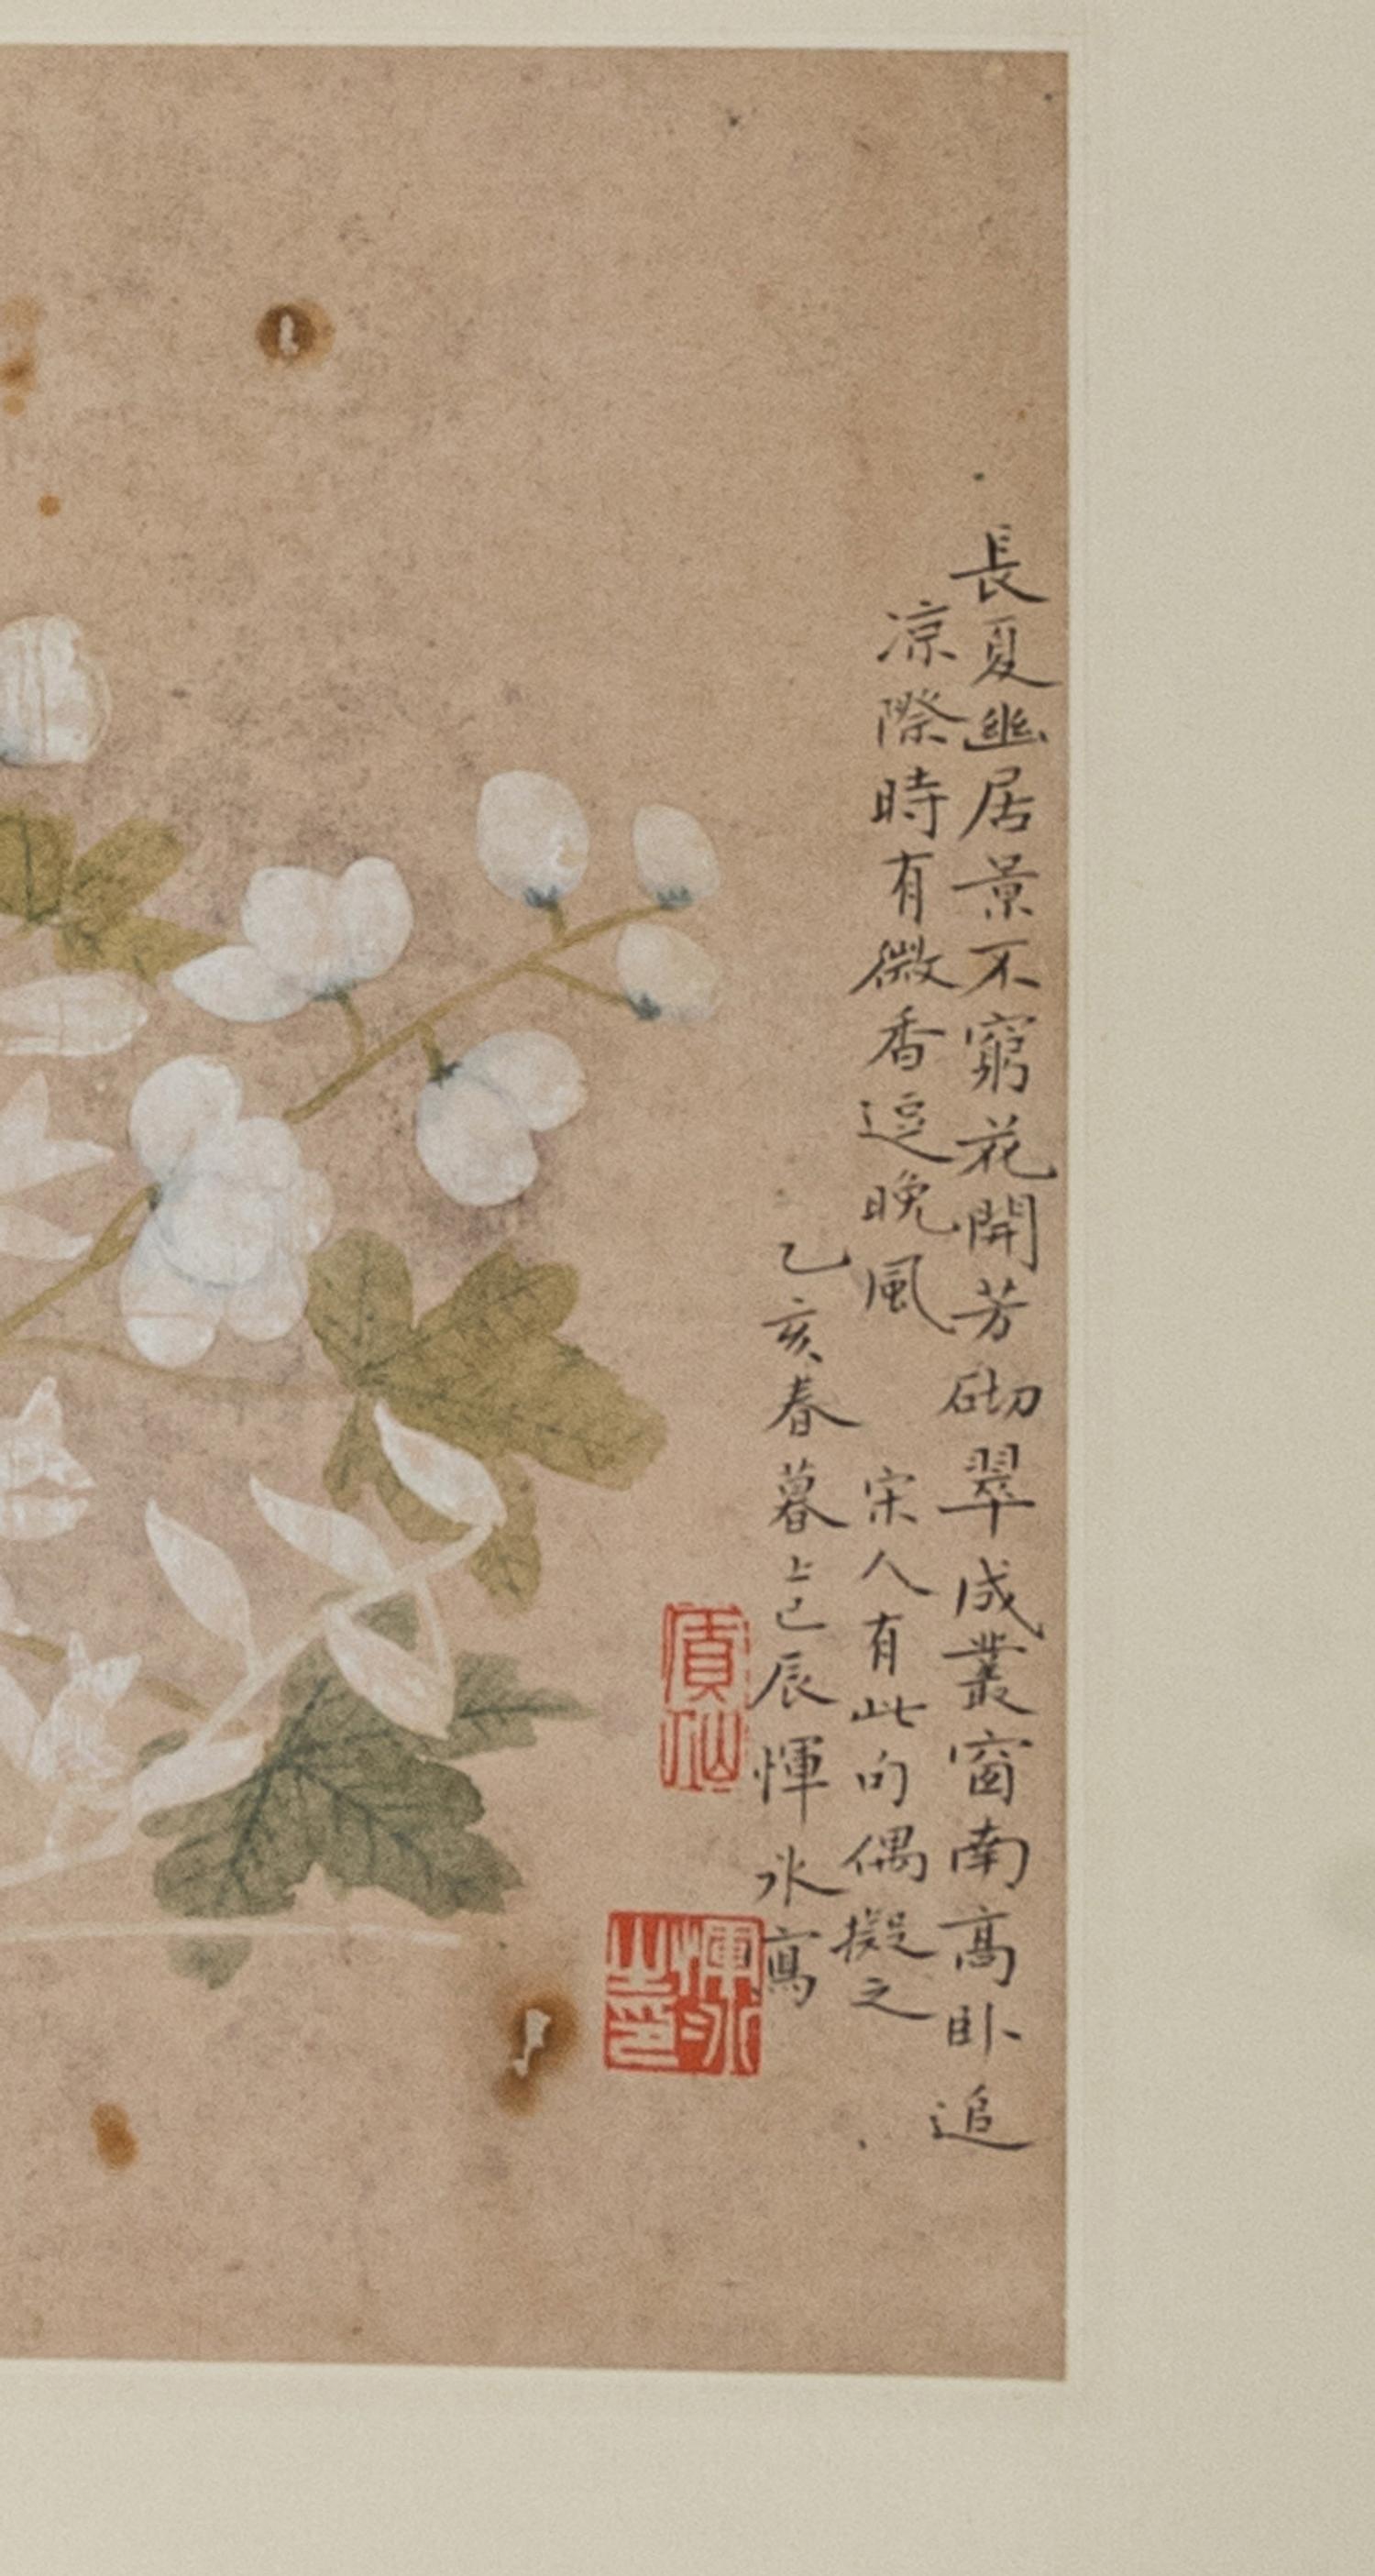 長夏幽居景不窮花開芳砌翠成叢窗南高卧追
凉際時有微香逗晚風　宋人有此句偶擬之
乙亥春暮上巳辰惲冰寫
惲冰之印